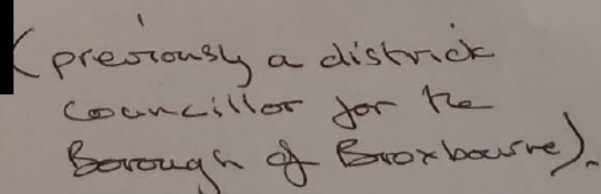 (previously a district
councillor for the
Borough of Broxbourne).